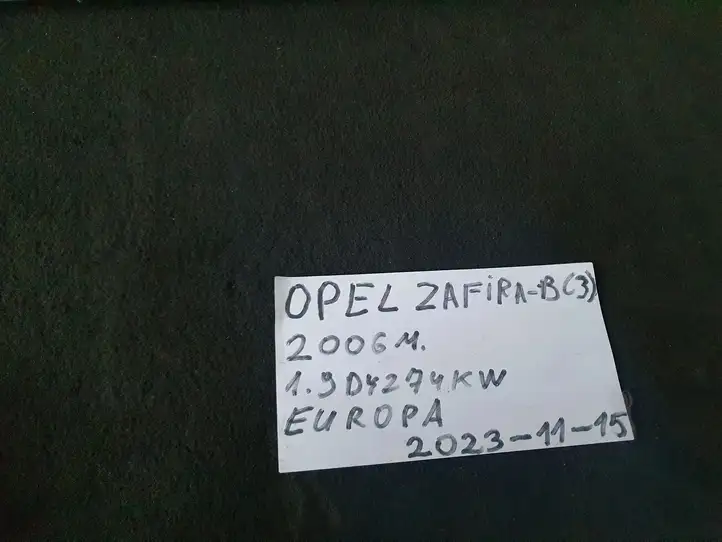 OPEL ZAFiRA-B(3)
2006M.
1.9D4274KW
EUROPA
2023-11-15